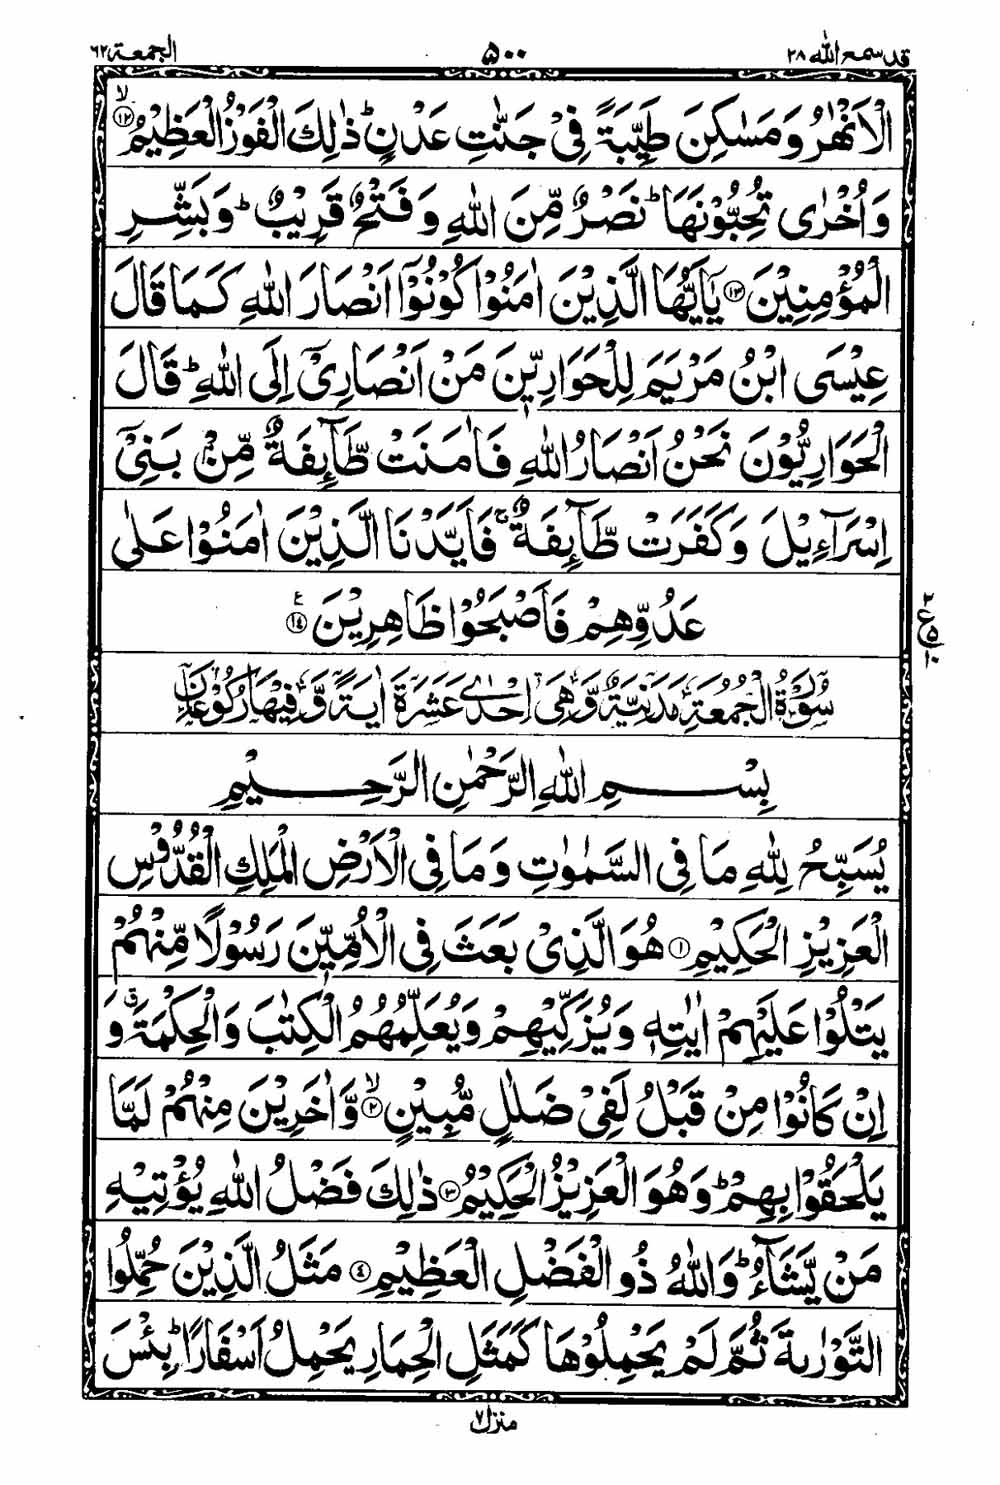 قد سمع الله ٢٨ ٥٠٠ الجمعة ٦٢
الْاَنْهٰرُ وَمَسٰكِنَ طَيِّبَةً فِیْ جَنّٰتِ عَدْنٍ ؕ ذٰلِكَ الْفَوْزُ الْعَظِيْمُ ۙ﴿۱۲﴾
وَاُخْرٰى تُحِبُّوْنَهَا ؕ نَصْرٌ مِّنَ اللّٰهِ وَفَتْحٌ قَرِيْبٌ ؕ وَبَشِّرِ
الْمُؤْمِنِيْنَ ﴿۱۳﴾ يٰۤاَيُّهَا الَّذِيْنَ اٰمَنُوْا كُوْنُوْۤا اَنْصَارَ اللّٰهِ كَمَا قَالَ
عِيْسَى ابْنُ مَرْيَمَ لِلْحَوَارِيّٖنَ مَنْ اَنْصَارِیْۤ اِلَى اللّٰهِ ؕ قَالَ
الْحَوَارِيُّوْنَ نَحْنُ اَنْصَارُ اللّٰهِ فَاٰمَنَتْ طَّآئِفَةٌ مِّنْۢ بَنِیْۤ
اِسْرَآءِيْلَ وَكَفَرَتْ طَّآئِفَةٌ ۚ فَاَيَّدْنَا الَّذِيْنَ اٰمَنُوْا عَلٰى
عَدُوِّهِمْ فَاَصْبَحُوْا ظَاهِرِيْنَ ﴿۱٤﴾ ع
٢ ع ٥ ١٠
سُوْرَةُ الْجُمُعَةِ مَدَنِيَّةٌ وَّهِیَ اِحْدٰی عَشَرَةَ اٰيَةً وَّفِيْهَا رُكُوْعَانِ
بِسْمِ اللّٰهِ الرَّحْمٰنِ الرَّحِيْمِ
يُسَبِّحُ لِلّٰهِ مَا فِی السَّمٰوٰتِ وَمَا فِی الْاَرْضِ الْمَلِكِ الْقُدُّوْسِ
الْعَزِيْزِ الْحَكِيْمِ ﴿۱﴾ هُوَ الَّذِیْ بَعَثَ فِی الْاُمِّيّٖنَ رَسُوْلًا مِّنْهُمْ
يَتْلُوْا عَلَيْهِمْ اٰيٰتِهٖ وَيُزَكِّيْهِمْ وَيُعَلِّمُهُمُ الْكِتٰبَ وَالْحِكْمَةَ ۗ وَ
اِنْ كَانُوْا مِنْ قَبْلُ لَفِیْ ضَلٰلٍ مُّبِيْنٍ ۙ﴿۲﴾ وَّاٰخَرِيْنَ مِنْهُمْ لَمَّا
يَلْحَقُوْا بِهِمْ ؕ وَهُوَ الْعَزِيْزُ الْحَكِيْمُ ﴿۳﴾ ذٰلِكَ فَضْلُ اللّٰهِ يُؤْتِيْهِ
مَنْ يَّشَآءُ ؕ وَاللّٰهُ ذُو الْفَضْلِ الْعَظِيْمِ ﴿٤﴾ مَثَلُ الَّذِيْنَ حُمِّلُوا
التَّوْرٰىةَ ثُمَّ لَمْ يَحْمِلُوْهَا كَمَثَلِ الْحِمَارِ يَحْمِلُ اَسْفَارًا ؕ بِئْسَ
منزل ٧